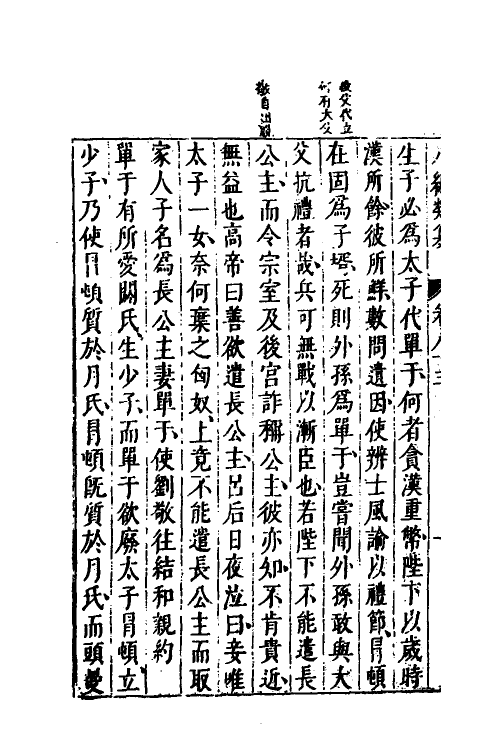 敬自出關
生子必爲太子代單于何者貪漢重幣陛下以歲時
漢所餘彼所鮮數問遺因使辨士風諭以禮節冒頓
在固爲子壻死則外孫爲單于豈嘗聞外孫敢與大
父抗禮者哉兵可無戰以漸臣也若陛下不能遣長
公主而令宗室及後宮詐稱公主彼亦知不肯貴近
無益也高帝曰善欲遣長公主呂后日夜泣曰妾唯
太子一女奈何棄之匈奴上竟不能遣長公主而取
家人子名爲長公主妻單于使劉敬往結和親約
單于有所愛閼氏生少子而單于欲廢太子冒頓立
少子乃使冒頓質於月氏冒頓旣質於月氏而頭曼